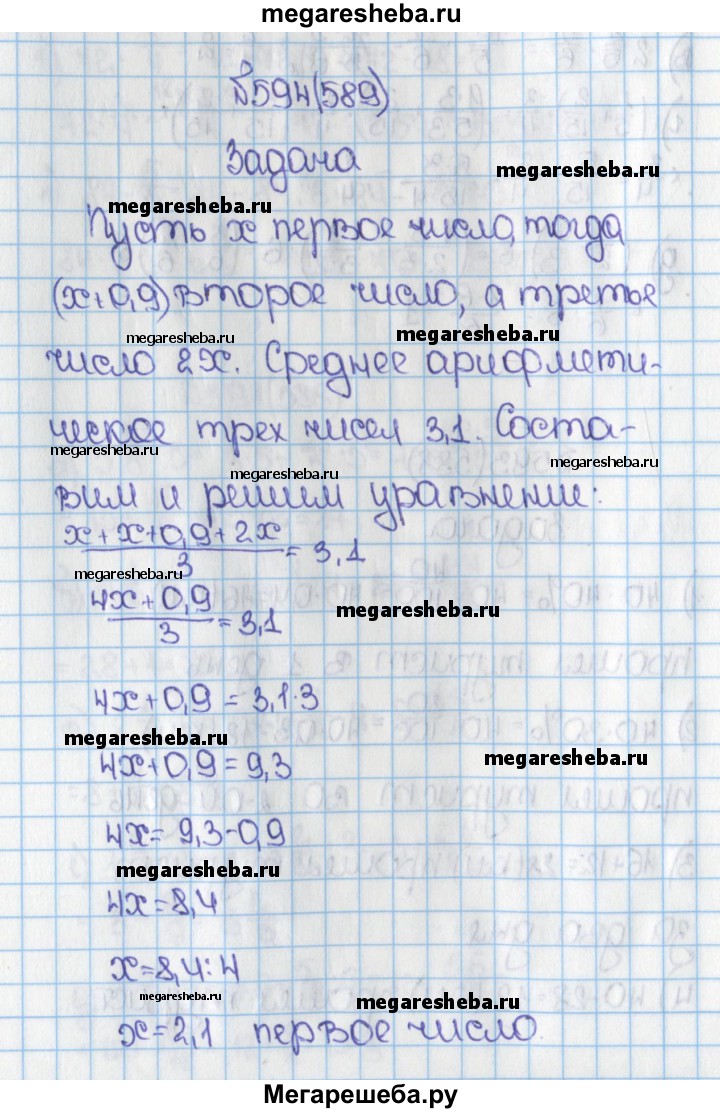 megaresheba.ru
№594(589)
Задача
megaresheba.ru
megaresheba.ru
Пусть x первое число, тогда
(x+0,9) второе число, а третье
megaresheba.ru
megaresheba.ru
число 2x. Среднее арифмети-
ческое трех чисел 3,1. Соста-
megaresheba.ru
megaresheba.ru
megaresheba.ru
вим и решим уравнение:
x+x+0,9+2x/3=3,1
megaresheba.ru
4x+0,9/3=3,1
megaresheba.ru
4x+0,9=3,1·3
megaresheba.ru
4x+0,9=9,3
megaresheba.ru
4x=9,3-0,9
megaresheba.ru
4x=8,4
x=8,4:4
megaresheba.ru
megaresheba.ru
x=2,1 первое число.
Мегарешеба.ру